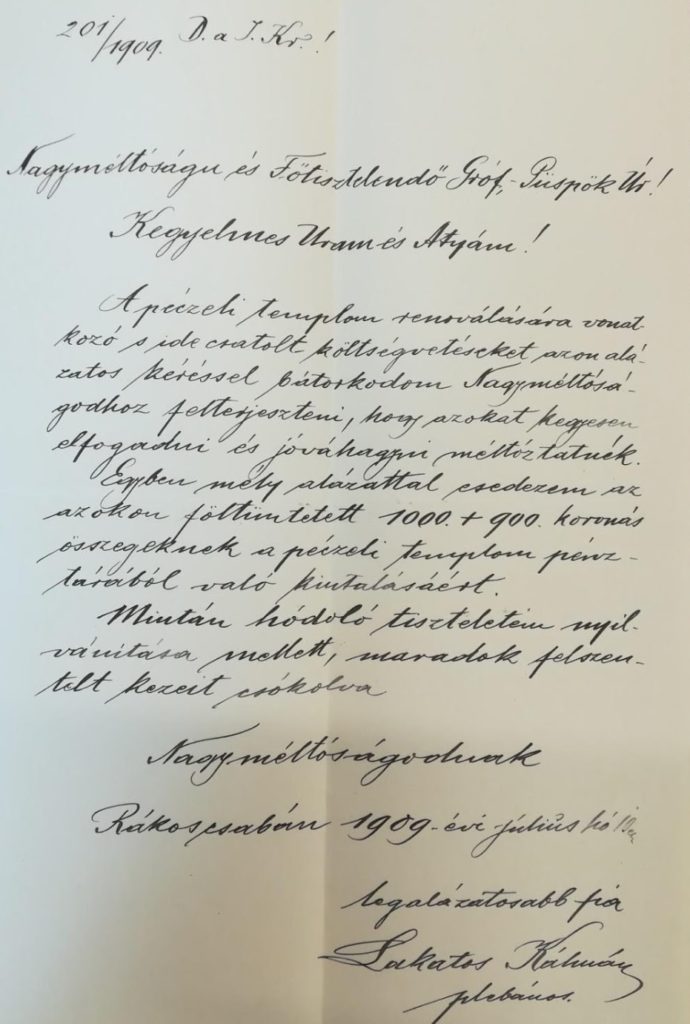 201/1909. D. a J. Kr.!
Nagyméltóságu és Főtisztelendő Gróf, Püspök Úr!
Kegyelmes Uram és Atyám!
A péczeli templom renoválására vonat-
kozó s ide csatolt költségvetéseket azon alá-
zatos kéréssel bátorkodom Nagyméltósá-
godhoz felterjeszteni, hogy azokat kegyesen
elfogadni és jóváhagyni méltóztatnék.
Egyben mély alázattal esedezem az
azokon föltüntetett 1000. + 900. koronás
összegeknek a péczeli templom pénz-
tárából való kiutalásáért.
Mintán hódoló tiszteletem nyil-
vánítása mellett, maradok felszen-
telt kezeit csókolva
Nagyméltóságodnak
Rákoscsabán 1909-évi július hó
legalázatosabb fia
Lakatos Kálmán
plebános.